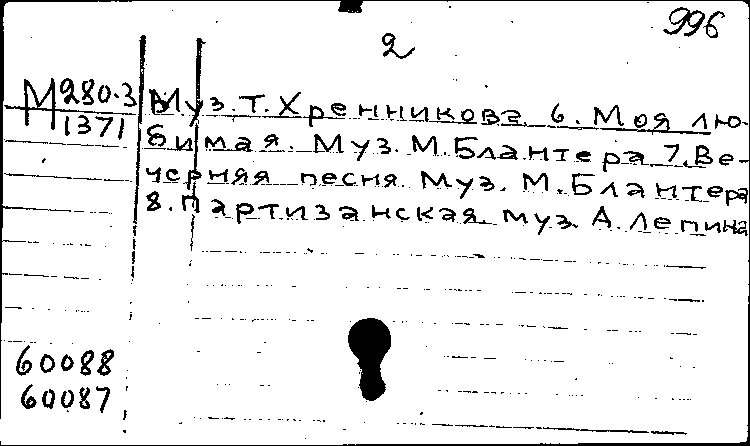 996
2
М 280-3
1371
Муз. Т. Хренникова. 6. Моя лю-
бимая. Муз. М. Блантера. 7. Ве-
черняя песня. Муз. М. Блантера
8. Партизанская. муз. А. Лепина
60088
60087